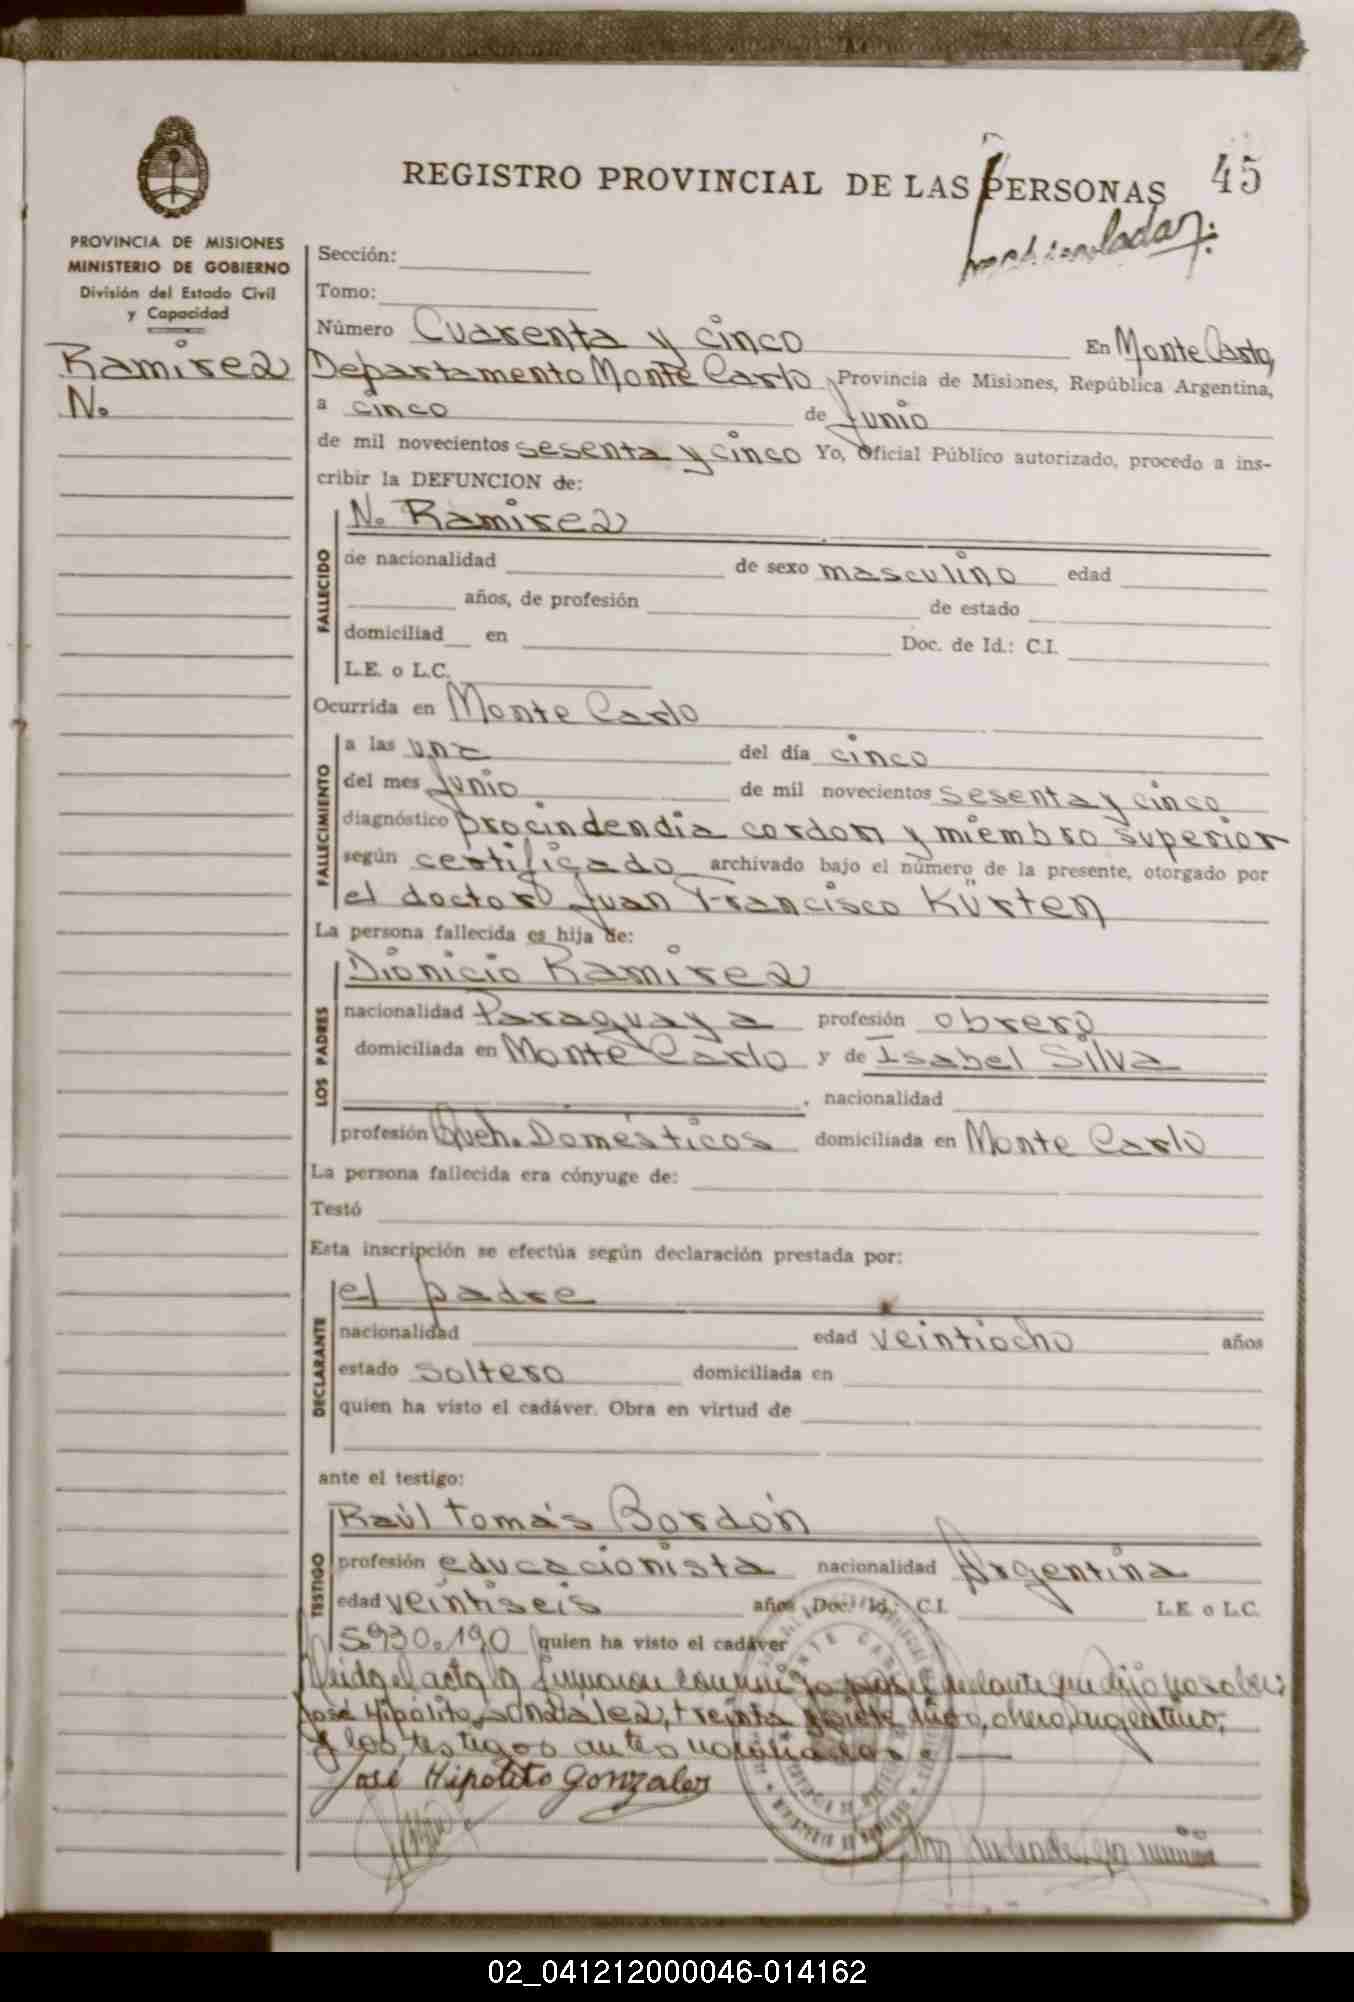 REGISTRO PROVINCIAL DE LAS PERSONAS
45
PROVINCIA DE MISIONES
MINISTERIO DE GOBIERNO
División del Estado Civil
y Capacidad
Ramirez
N.
Sección:
Tomo:
Número Cuarenta y cinco En Monte Carlo,
Departamento Monte Carlo, Provincia de Misiones, República Argentina,
a cinco de Junio
de mil novecientos sesenta y cinco Yo, Oficial Público autorizado, procedo a ins-
cribir la DEFUNCION de:
FALLECIDO
N. Ramirez
de nacionalidad de sexo masculino edad
años, de profesión de estado
domiciliad en Doc. de Id.: C.I.
L.E. o L.C.
Ocurrida en Monte Carlo
FALLECIMIENTO
a las una del día cinco
del mes Junio de mil novecientos sesenta y cinco
diagnóstico procindendia cordon y miembro superior
según certificado archivado bajo el número de la presente, otorgado por
el doctor Juan Francisco Kürten
La persona fallecida es hija de:
LOS PADRES
Dionicio Ramirez
nacionalidad Paraguaya profesión obrero
domiciliada en Monte Carlo y de Isabel Silva
, nacionalidad
profesión Queh. Domésticos domiciliada en Monte Carlo
La persona fallecida era cónyuge de:
Testó
Esta inscripción se efectúa según declaración prestada por:
DECLARANTE
el padre
nacionalidad edad veintiocho años
estado soltero domiciliada en
quien ha visto el cadáver. Obra en virtud de
ante el testigo:
TESTIGO
Raúl Tomás Bordón
profesión educacionista nacionalidad Argentina
edad veintiseis años Doc. Id.: C.I. L.E. o L.C.
5.930.190 quien ha visto el cadáver
Leida el acta la firmaron conmigo por el declarante que dijo no saber
José Hipólito González, treinta y siete años, obrero, argentino,
y los testigos antes
José Hipolito Gonzales
02_041212000046-014162